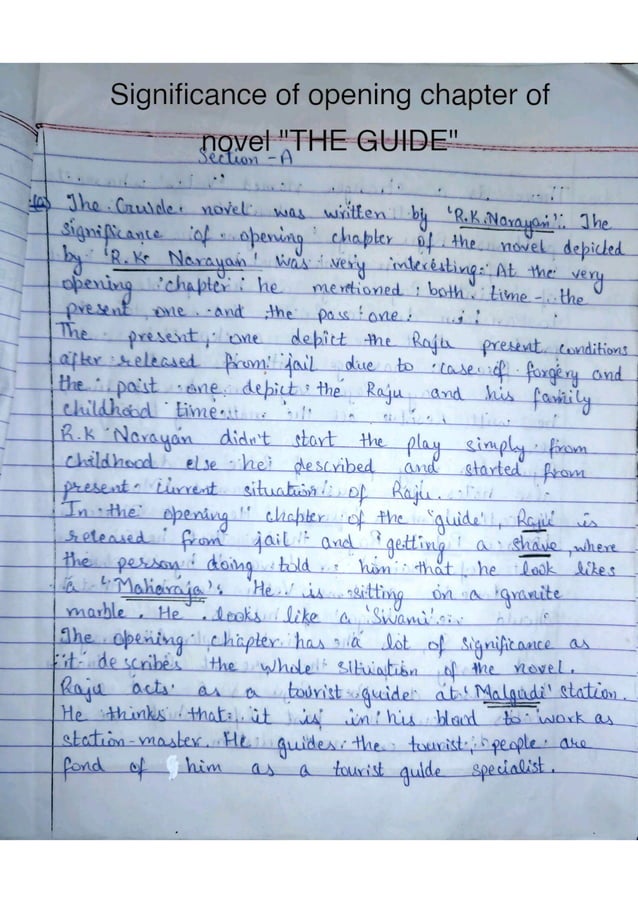 Significance of opening chapter of
novel "THE GUIDE"
Section - A
(a) The Guide novel was written by 'R.K.Narayan'. The
significance of opening chapter of the novel depicted
by 'R.K. Narayan' was very interesting. At the very
opening chapter he mentioned both time - the
present one and the pass one.
The present, one depict the Raju present conditions
after released from jail due to case of forgery and
the past one depict the Raju and his family
childhood time.
R.K Narayan didn't start the play simply from
childhood else he described and started from
present current situation of Raju.
In the opening chapter of the "guide", Raju is
released from jail and getting a shave, where
the person doing told him that he look likes
a 'Maharaja'. He is sitting on a granite
marble. He looks like a 'Swami'.
The opening chapter has a lot of significance as
it describes the whole situation of the novel.
Raju acts as a tourist guide at 'Malgudi' station.
He thinks that it is in his blood to work as
station-master. He guides the tourist, people are
fond of him as a tourist guide specialist.